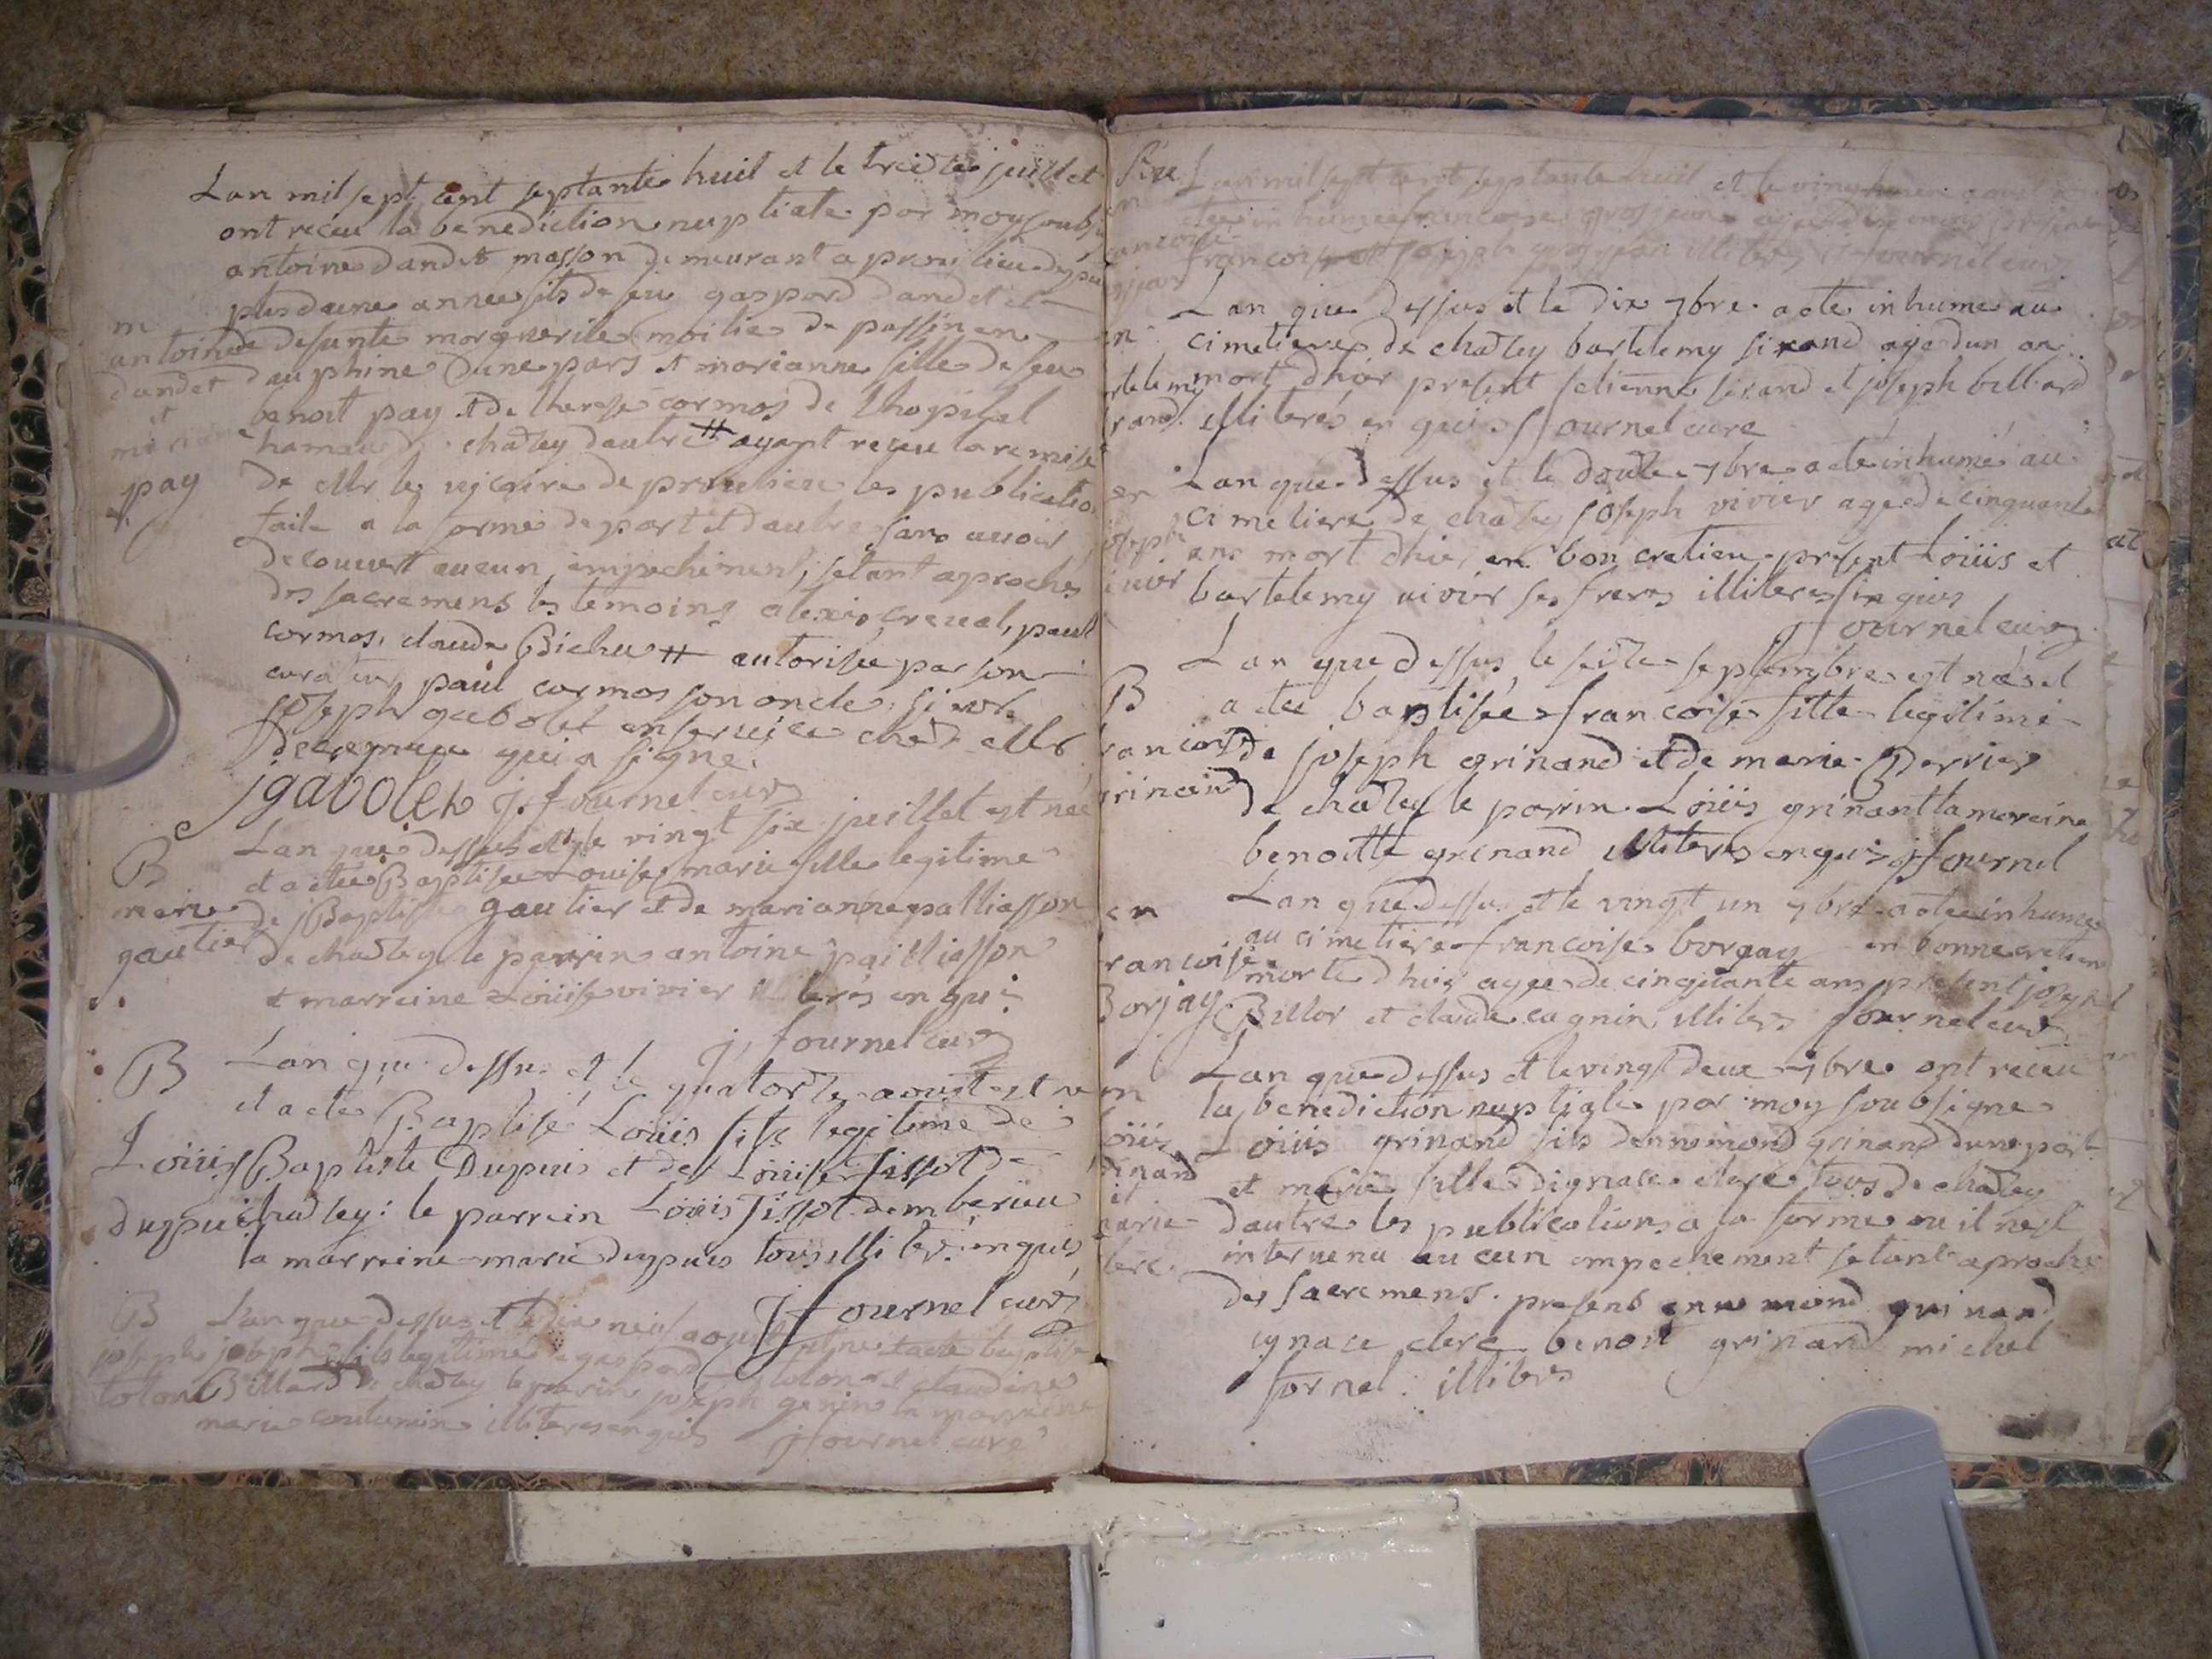 Lan mil sept cent septante huit et le treize juillet
ont receu la benediction nuptiale par moy soubsi
antoine dandet masson demeurant a proulieu depui
plus daune annee fils de feu gaspard dandet et
m
antoine
dandet
et
pay
de defunte marguerite moilie de passin en
dauphine dune part et marianne fille de feu
benoit pay et de therese cormos de lhopital
hameau chazey dautre # ayant receu la remise
de Mr le vicaire de proulieu les publicatio
faite a la forme de part et dautre sans avoir
decouvert aucun impechement, setant aproches
des sacremens les temoins alexis creval, paul
cormos, claude Bichu # autorisée par son
curateur paul cormos son oncle, sieur
joseph gabolet en service chez Mr
qui a signe.
jgabolet j. fournel cure
B
marie
gautier
Lan que dessus et le vingt six juillet est née
et a etée Baptisée Louise marie fille legitime
de jBaptiste gautier et de marianne palliasson
de chazey le parrin antoine pailliasson
et marreine Loüise vivier en quis
j. fournel cure
B
Loüis
dupuis
Lan que dessus et le quatorze aoust est ne
et a eté Baptisé Loüis fils legitime de
Baptiste Dupuis et de Loüise Tissot de
chazey: le parrein Loüis Tissot dambericu
la marreine marie dupuis tous illiterés enquis
jfournel curé
B
joseph
tolon
Lan que dessus et le dix neuf aoust est ne et a ete baptise
joseph fils legitime a gaspard tolon et claudine
Billard de chazey le parin joseph genin la marreine
marie coutumin illiteres enquis jfournel curé
Lan mil sept cent septante huit et le vingt aout
etée inhumee francoise gros jean
francois et joseph grosjean illiteres fournel cure
Lan que dessus et le dix 7bre a ete inhume au
cimetiere de chazey bartelemy sirand agé dun an
mort dhier present etienne sirand et joseph billard
illiterés en quis jfournel cure
Lan que dessus et le douze 7bre a ete inhumé au
cimetiere de chazey joseph vivier age de cinquante
ans mort dhier en bon cretien present Loüis et
bartelemy vivier ses freres illiteres en quis
jfournel cure
B
Lan que dessus le seize septembre est nées et
a etee baptisée francoise fille legitime
de joseph grinand et de marie Perrier
de chazey le parin Loüis grinant la mareine
benoitte grinand illiteres enquis jfournel
Lan que dessus et le vingt un 7bre a etee inhumee
au cimetiere francoise borgay en bonne cretien
morte dhier agee de cinquante ans present joseph
Billor et claude cagnin illiteres fournel cure
Lan que dessus et le vingt deux 7bre ont receu
la benediction nuptiale par moy soubsigne
Loüis grinand fils dennemond grinand dune part
et marie fille dignace clerc tous de chazey
dautre les publications a la forme ou il nest
intervenu aucun empechement setant aproche
des sacremens. presens ennemond grinand
ignace clerc benoit grinand michel
fornel illiteres